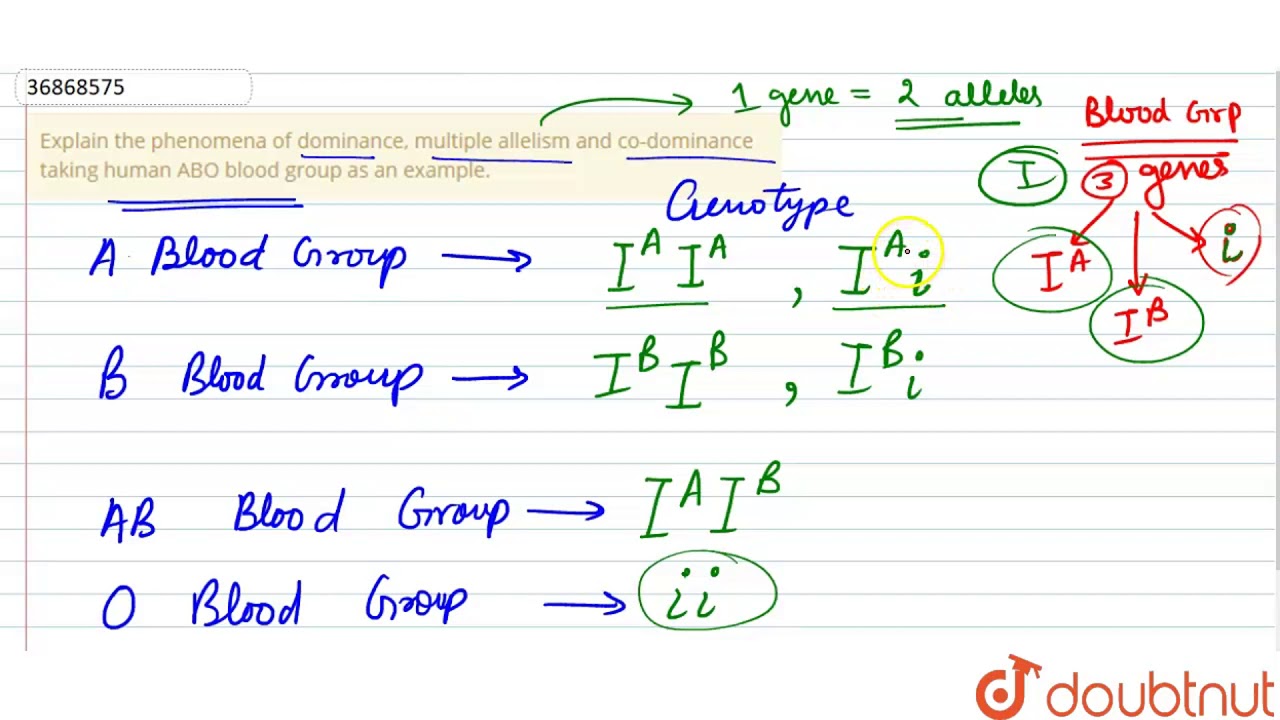 36868575
1 gene = 2 alleles
Blood Grp
Explain the phenomena of dominance, multiple allelism and co-dominance
taking human ABO blood group as an example.
I 3 genes
Genotype
I^A I^B i
A Blood Group → I^A I^A , I^A i
B Blood Group → I^B I^B , I^B i
AB Blood Group → I^A I^B
O Blood Group → ii
doubtnut